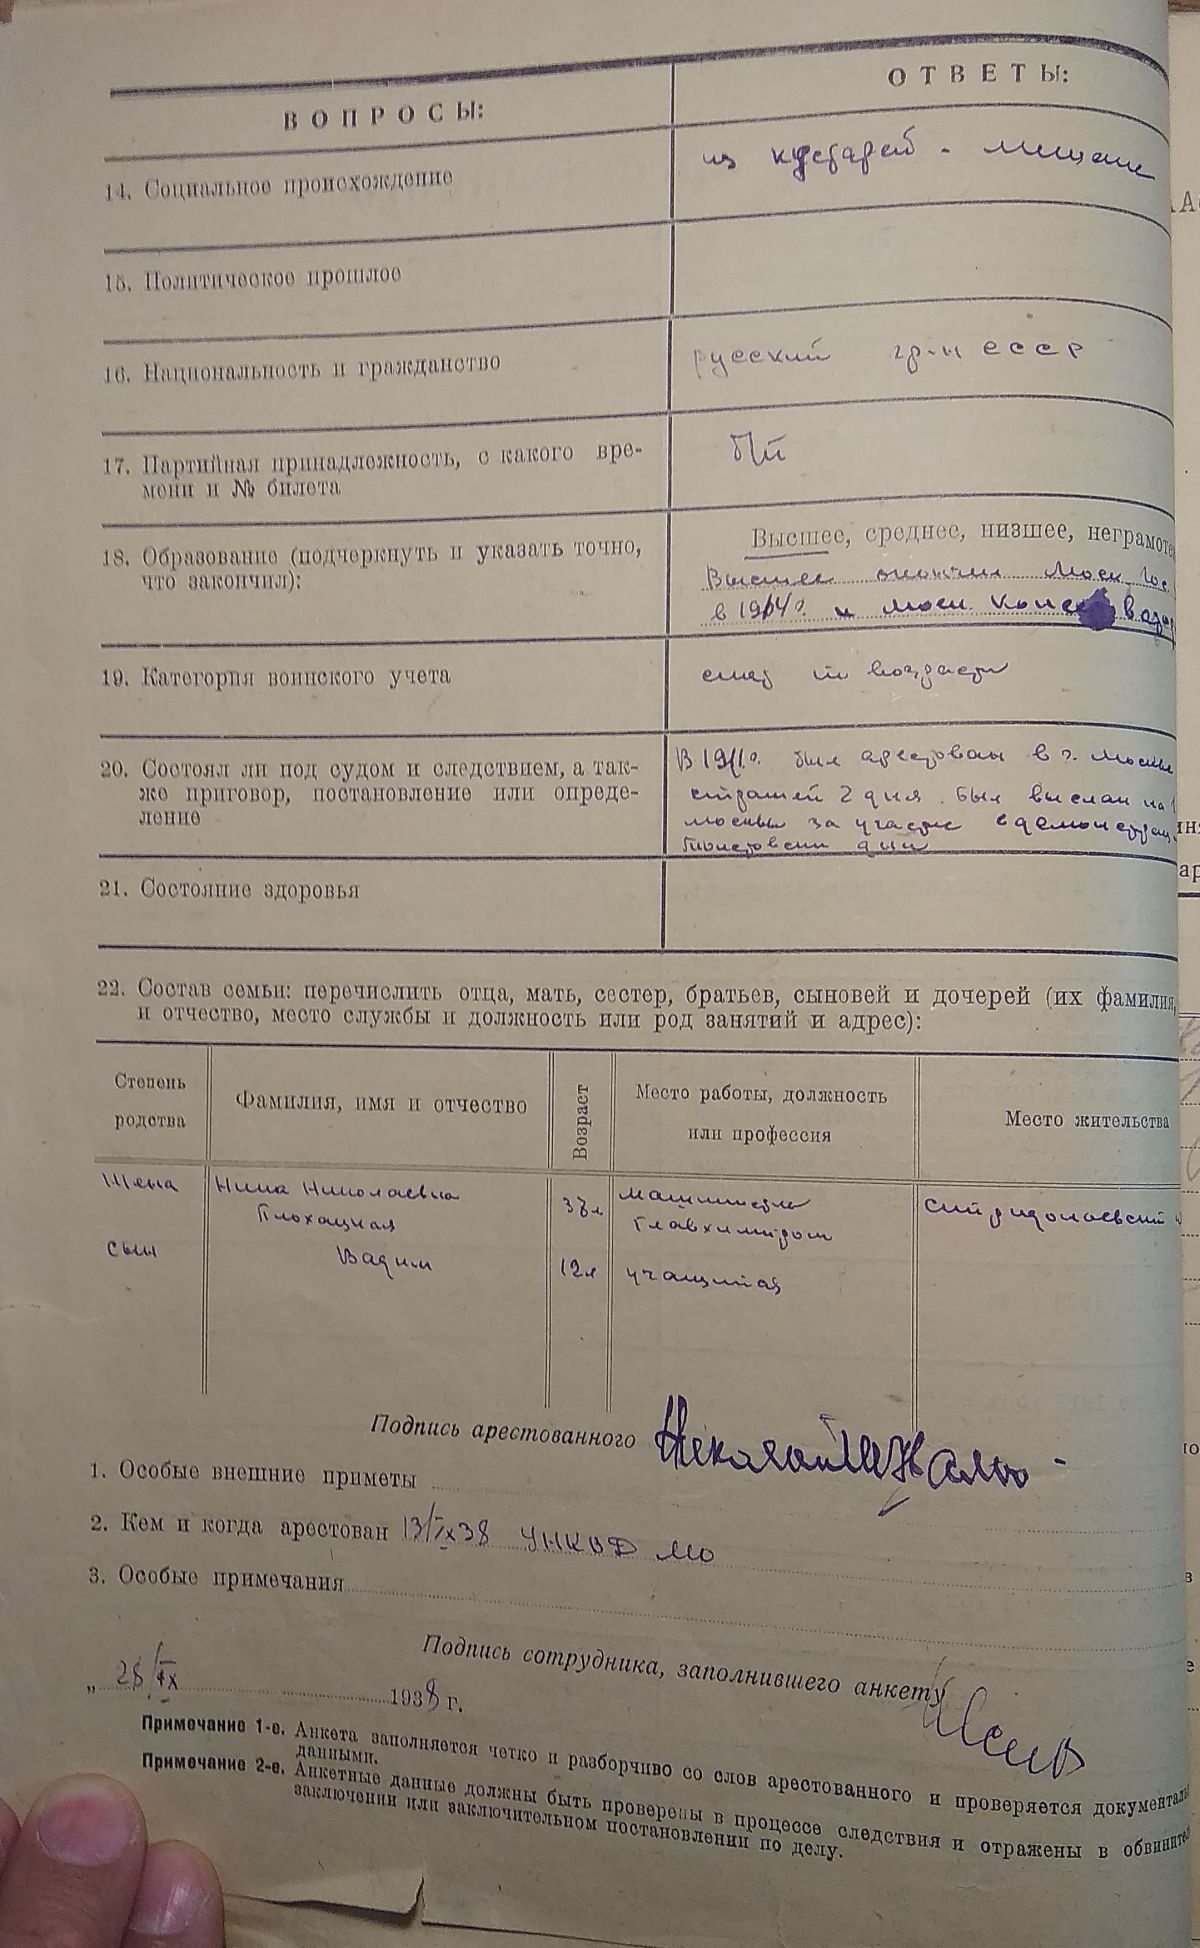 ВОПРОСЫ:
ОТВЕТЫ:
14. Социальное происхождение
из кустарей - мещане
15. Политическое прошлое
16. Национальность и гражданство
русский гр-н СССР
17. Партийная принадлежность, с какого вре-
мени и № билета
б/п
18. Образование (подчеркнуть и указать точно,
что закончил):
Высшее, среднее, низшее, неграмоте
Высшее окончил Моск. Гос.
в 1914 г. и моск. консе
19. Категория воинского учета
снят по возрасту
20. Состоял ли под судом и следствием, а так-
же приговор, постановление или опреде-
ление
В 1911 г. был арестован в г. Москве
2 дня. Был выслан из
Москвы за участие в демонстрац
Толстовски дни
21. Состояние здоровья
22. Состав семьи: перечислить отца, мать, сестер, братьев, сыновей и дочерей (их фамилия,
и отчество, место службы и должность или род занятий и адрес):
Степень
родства
Фамилия, имя и отчество
Возраст
Место работы, должность
или профессия
Место жительства
Жена
Нина Николаевна
Плохацкая
машинистка
Главхимпром
Спиридоньевский
сын
Вадим
12 л
учащийся
Подпись арестованного
1. Особые внешние приметы
2. Кем и когда арестован 13/IX 38 УНКВД МО
3. Особые примечания
Подпись сотрудника, заполнившего анкету
„ 28/IX 1938 г.
Примечание 1-е. Анкета заполняется четко и разборчиво со слов арестованного и проверяется документаль
данными.
Примечание 2-е. Анкетные данные должны быть проверены в процессе следствия и отражены в обвините
заключении или заключительном постановлении по делу.